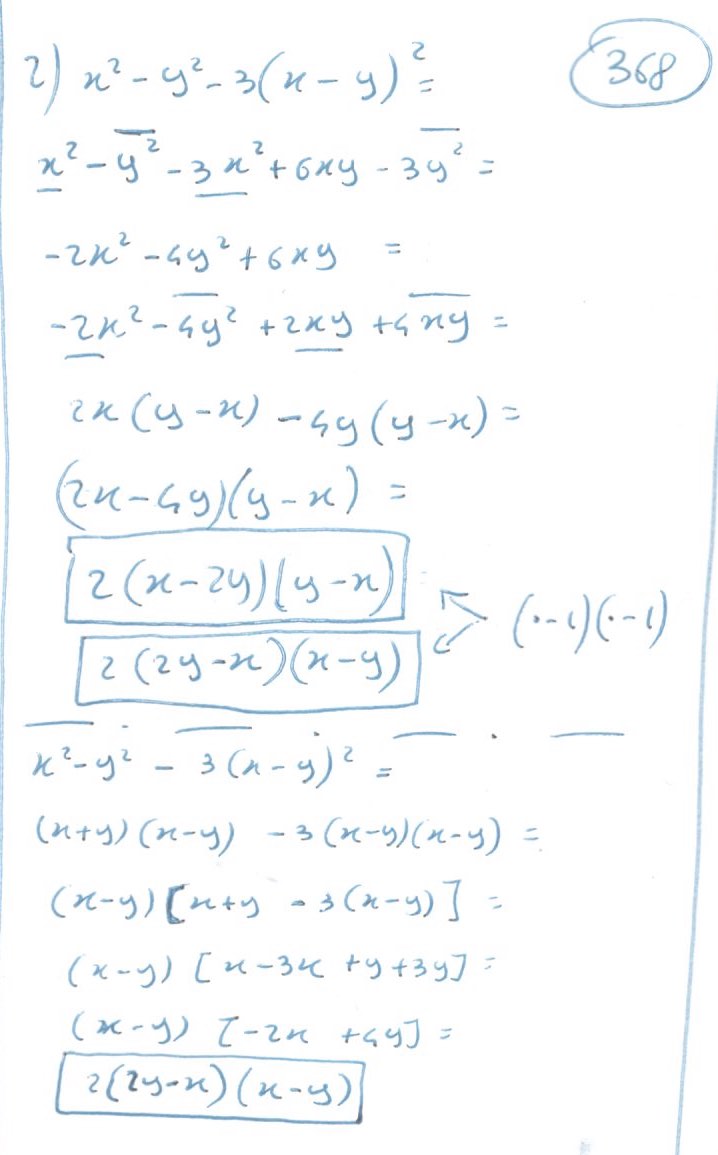 2) x² - y² - 3(x - y)² =
368
x² - y² - 3x² + 6xy - 3y² =
-2x² - 4y² + 6xy =
-2x² - 4y² + 2xy + 4xy =
2x(y - x) - 4y(y - x) =
(2x - 4y)(y - x) =
2(x - 2y)(y - x)
(·-1)(·-1)
2(2y - x)(x - y)
x² - y² - 3(x - y)² =
(x+y)(x-y) - 3(x-y)(x-y) =
(x-y)[x+y - 3(x-y)] =
(x-y) [x - 3x + y + 3y] =
(x-y) [-2x + 4y] =
2(2y-x)(x-y)